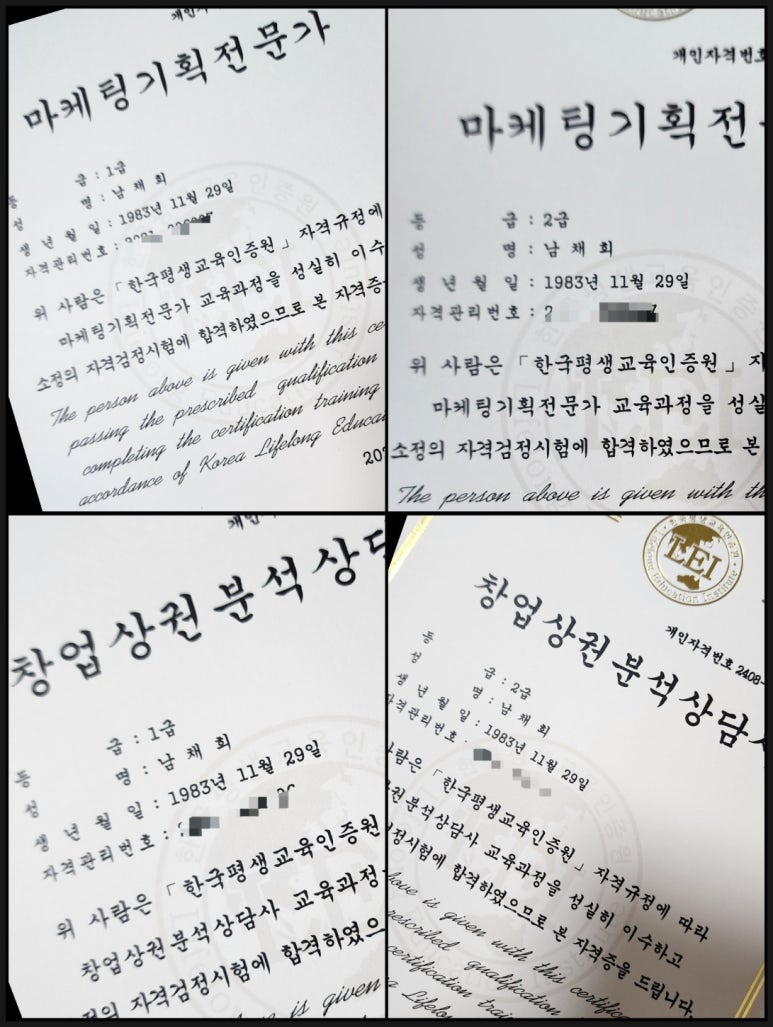 마케팅기획전문가
등 급 : 1급
성 명 : 남 채 희
생 년 월 일 : 1983년 11월 29일
자격관리번호 :
위 사람은 「한국평생교육인증원」 자격규정에
마케팅기획전문가 교육과정을 성실히 이수
소정의 자격검정시험에 합격하였으므로 본 자격증
The person above is given with this ce
passing the prescribed qualification
completing the certification training
accordance of Korea Lifelong Educa
개인자격번호
마케팅기획전
등 급 : 2급
성 명 : 남 채 희
생 년 월 일 : 1983년 11월 29일
자격관리번호 : 2
위 사람은 「한국평생교육인증원」
마케팅기획전문가 교육과정을 성실
소정의 자격검정시험에 합격하였으므로 본
The person above is given with th
개인자
창업상권분석상담
등 급 : 1급
성 명 : 남 채 희
생 년 월 일 : 1983년 11월 29일
자격관리번호 :
위 사람은 「한국평생교육인증원
창업상권분석상담사 교육과정
정의 자격검정시험에 합격하였으
is given
LEI
Education Institute
개인자격번호 2408-
창업상권분석상담
등 급 : 2급
성 명 : 남 채 희
생 년 월 일 : 1983년 11월 29일
자격관리번호 :
사람은 「한국평생교육인증원」 자격규정에 따라
권분석상담사 교육과정을 성실히 이수하고
정시험에 합격하였으므로 본 자격증을 드립니다.
bove is given with this certific
rescribed qualification
certification trai
Lifelon